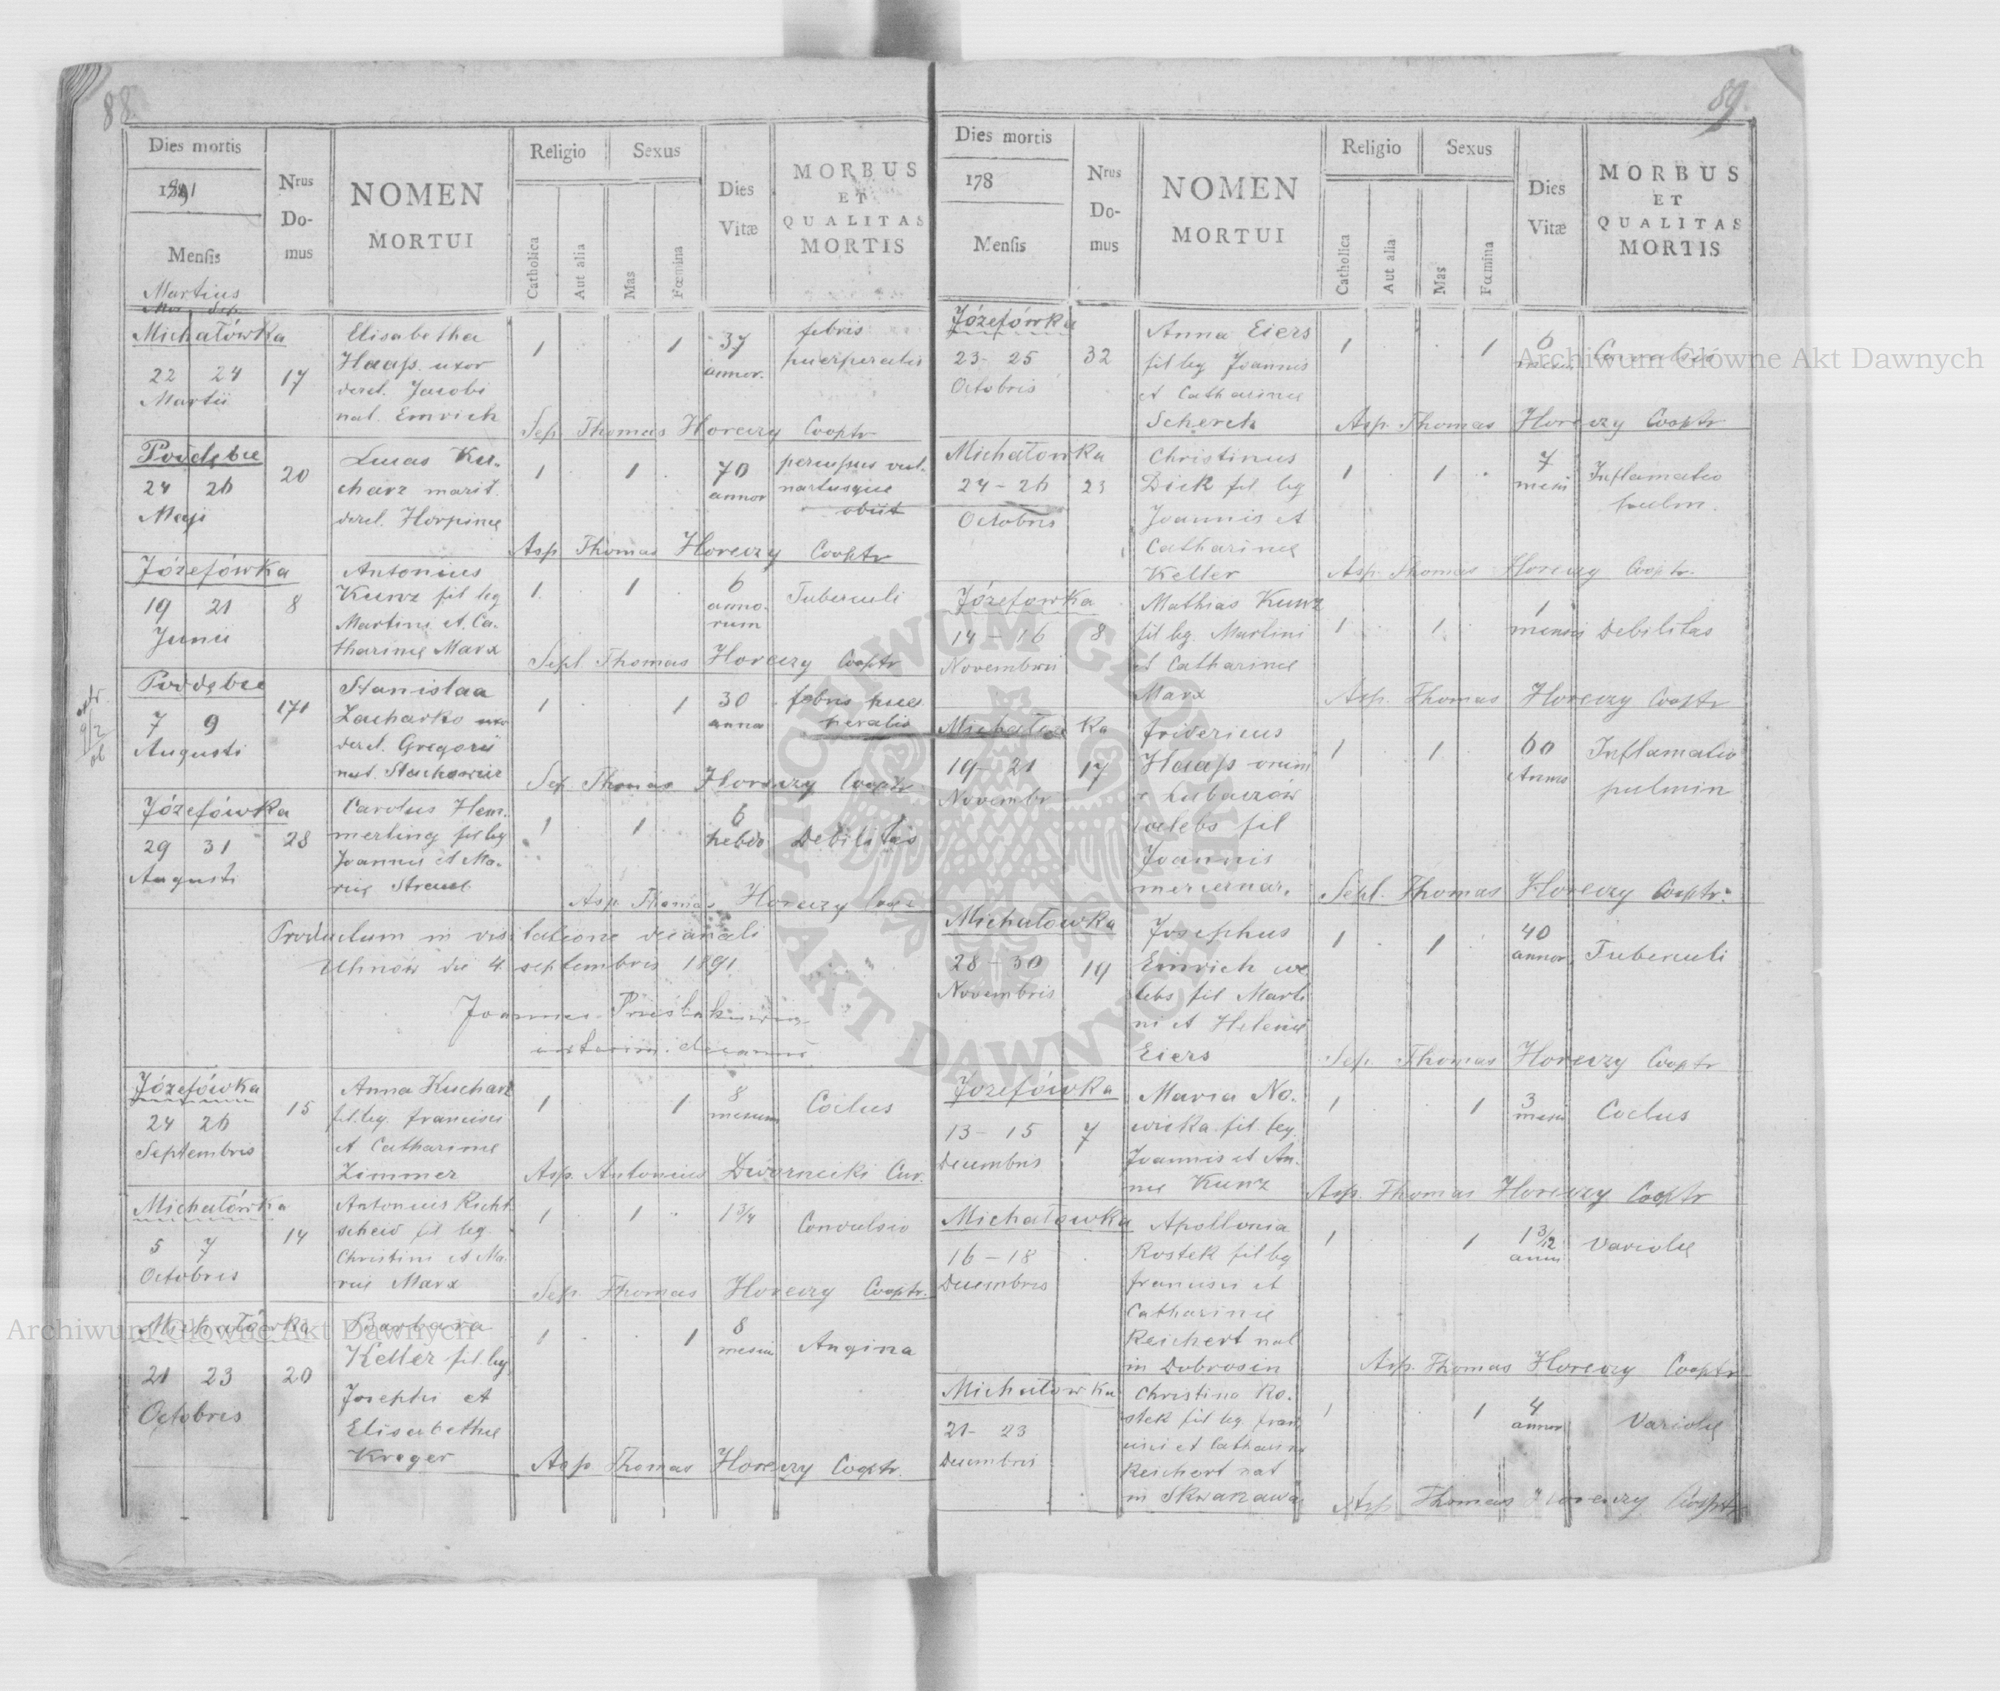 88.
Dies mortis
1891
Mensis
Nrus
Do-
mus
NOMEN
MORTUI
Religio
Sexus
Catholica
Aut alia
Mas
Fœmina
Dies
Vitæ
MORBUS
ET
QUALITAS
MORTIS
Martius
Michałówka
22 24
Martii
17
Elisabetha
Haaß uxor
derel. Jacobi
nat. Emrich
1
1
37
annor.
febris
puerperalis
Sep. Thomas Horeczy Cooptr
Poddębce
24 26
Maji
20
Lucas Ku-
charz marit.
derel. Horpinæ
1
1
70
annor
obiit
Asp. Thomas Horeczy Cooptr
Józefówka
19 21
Junii
8
Antonius
Kunz fil leg
Martini et Ca-
tharinæ Marx
1
1
6
anno-
rum
Tuberculi
Sepl Thomas Horeczy Cooptr
Poddębce
7 9
Augusti
171
Stanislaa
Zacharko
derel. Gregorii
nat.
1
1
30
febris puer
peralis
Sep. Thomas Horeczy Cooptr
Józefówka
29 31
Augusti
28
Carolus Hem-
merling fil leg
Joannis et Ma-
riæ
1
1
6
hebdo
Debilitas
Asp. Thomas Horeczy Coop
Productum in visitatione decanali
Uhnów die 4 septembris 1891
Joannes
interim. decanus
Józefówka
24 26
Septembris
15
Anna Kucharz
fil. leg. Francisci
et Catharinæ
Zimmer
1
1
8
mensium
Coelus
Asp. Antonius Dwornicki Cur.
Michałówka
5 7
Octobris
14
Antonius Richt
scheid fil leg
Christini et Ma-
riæ Marx
1
1
1 3/4
Convulsio
Sep. Thomas Horeczy Cooptr.
Michałówka
21 23
Octobris
20
Barbara
Keller fil. leg
Josephi et
Elisabethæ
Kroger
1
1
8
Angina
Asp. Thomas Horeczy Cooptr.
89.
Dies mortis
178
Mensis
Nrus
Do-
mus
NOMEN
MORTUI
Religio
Sexus
Catholica
Aut alia
Mas
Fœmina
Dies
Vitæ
MORBUS
ET
QUALITAS
MORTIS
Józefówka
23- 25
Octobris
32
Anna Eiers
fil leg Joannis
et Catharinæ
Scherek
1
1
6
Asp. Thomas Horeczy Cooptr
Michałowka
24 - 26
Octobris
23
Christinus
Dick fil leg
Joannis et
Catharinæ
Keller
1
1
7
Inflamatio
pulm.
Asp. Thomas Horeczy Cooptr.
Józefowka
14 - 16
Novembris
8
Mathias Kunz
fil leg. Martini
et Catharinæ
Marx
1
1
1
mensis
Debilitas
Asp. Thomas Horeczy Cooptr
Michałowka
19- 21
Novembr
17
Fridericus
Haaß
Lubaczów
coelebs fil
Joannis
mercenar.
1
1
60
Annos
Inflamatio
pulmin
Sepl. Thomas Horeczy Cooptr.
Michałowka
28 - 30
Novembris
19
Josephus
Emrich coe
lebs fil Marti
ni et Helenæ
Eiers
1
1
40
annor,
Tuberculi
Sep. Thomas Horeczy Cooptr
Jozefówka
13- 15
Decembris
7
Maria No-
wicka fil. leg.
Joannis et An-
næ Kunz
1
1
3
Coelus
Asp. Thomas Horeczy Cooptr
Michałowka
16 - 18
Decembris
Apollonia
Rostek fil leg
Francisci et
Catharinæ
Reichert nat
in Dobrosin
1
1
1 3/12
anni
Variolæ
Asp. Thomas Horeczy Cooptr
Michałowka
21- 23
Decembris
Christina Ro-
stek fil leg. Fran
cisci et Catharinæ
Reichert nat
in Skwarzawa
1
1
4
annor
Variolæ
Asp. Thomas Horeczy Cooptr
Archiwum Główne Akt Dawnych
Archiwum Główne Akt Dawnych
ARCHIWUM GŁÓWNE AKT DAWNYCH